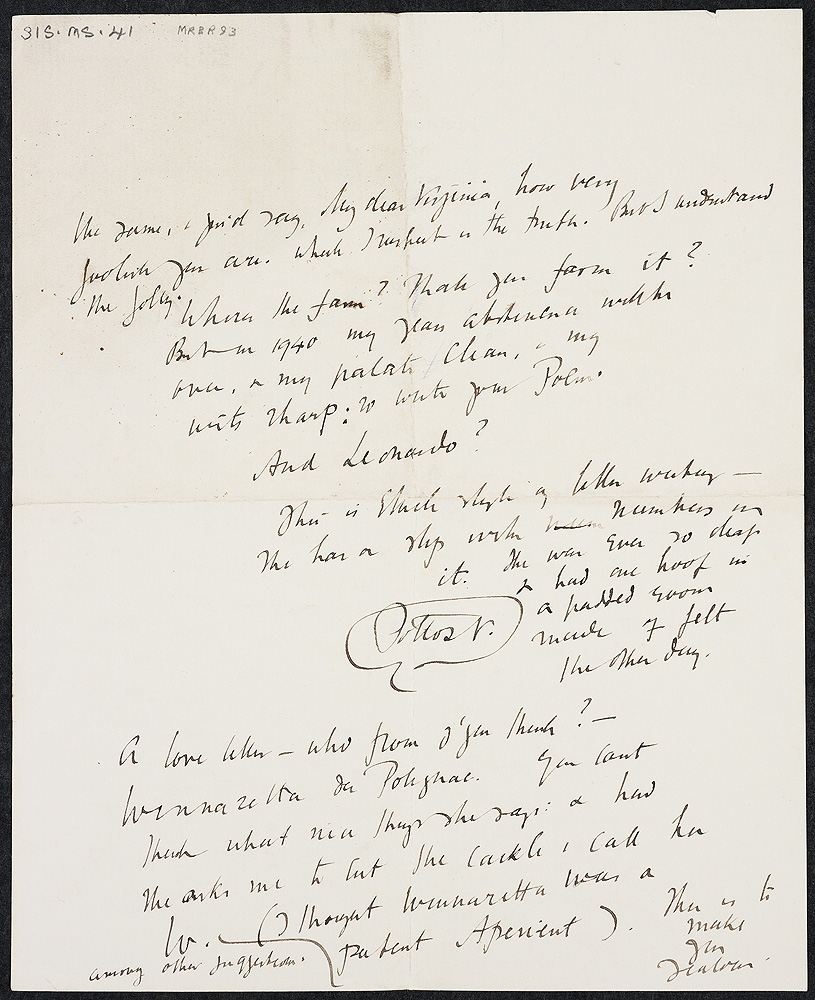 SIS.MS.41 MRBR93
the same, & just say, My dear Virginia, how very
foolish you are. which I suspect is the truth. But I understand
the folly.
Wheres the farm? That you farm it?
But in 1940 my years abstinence will be
over, & my palate clean, & my
wits sharp: to write your Poem.
And Leonardo?
This is style of letter writing —
She has a slip with numbers on
it. She was ever so deaf
& had one hoof in
a padded room
made of felt
the other day.
Potto's V.
A love letter — who from d'you think? —
Winnaretta da Polignac. You cant
think what nice things she says: & had
She asks me to cut the cackle & call her
W. (I thought Winnaretta was a
patent Aperient).
among other suggestions.
This is to
make
you
Jealous.